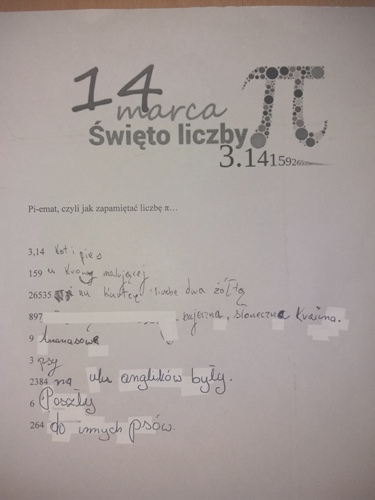 14
marca
Święto liczby π
3.1415926
Pi-emat, czyli jak zapamiętać liczbę π...
3,14 Kot i pies
159 u Krowy malującej
26535 dwa żółtą
897 bajeczna, słoneczna Kraina.
9 Ananasowa
3 psy
2384 na ulu anglików były.
6 Poszły
264 do innych psów.